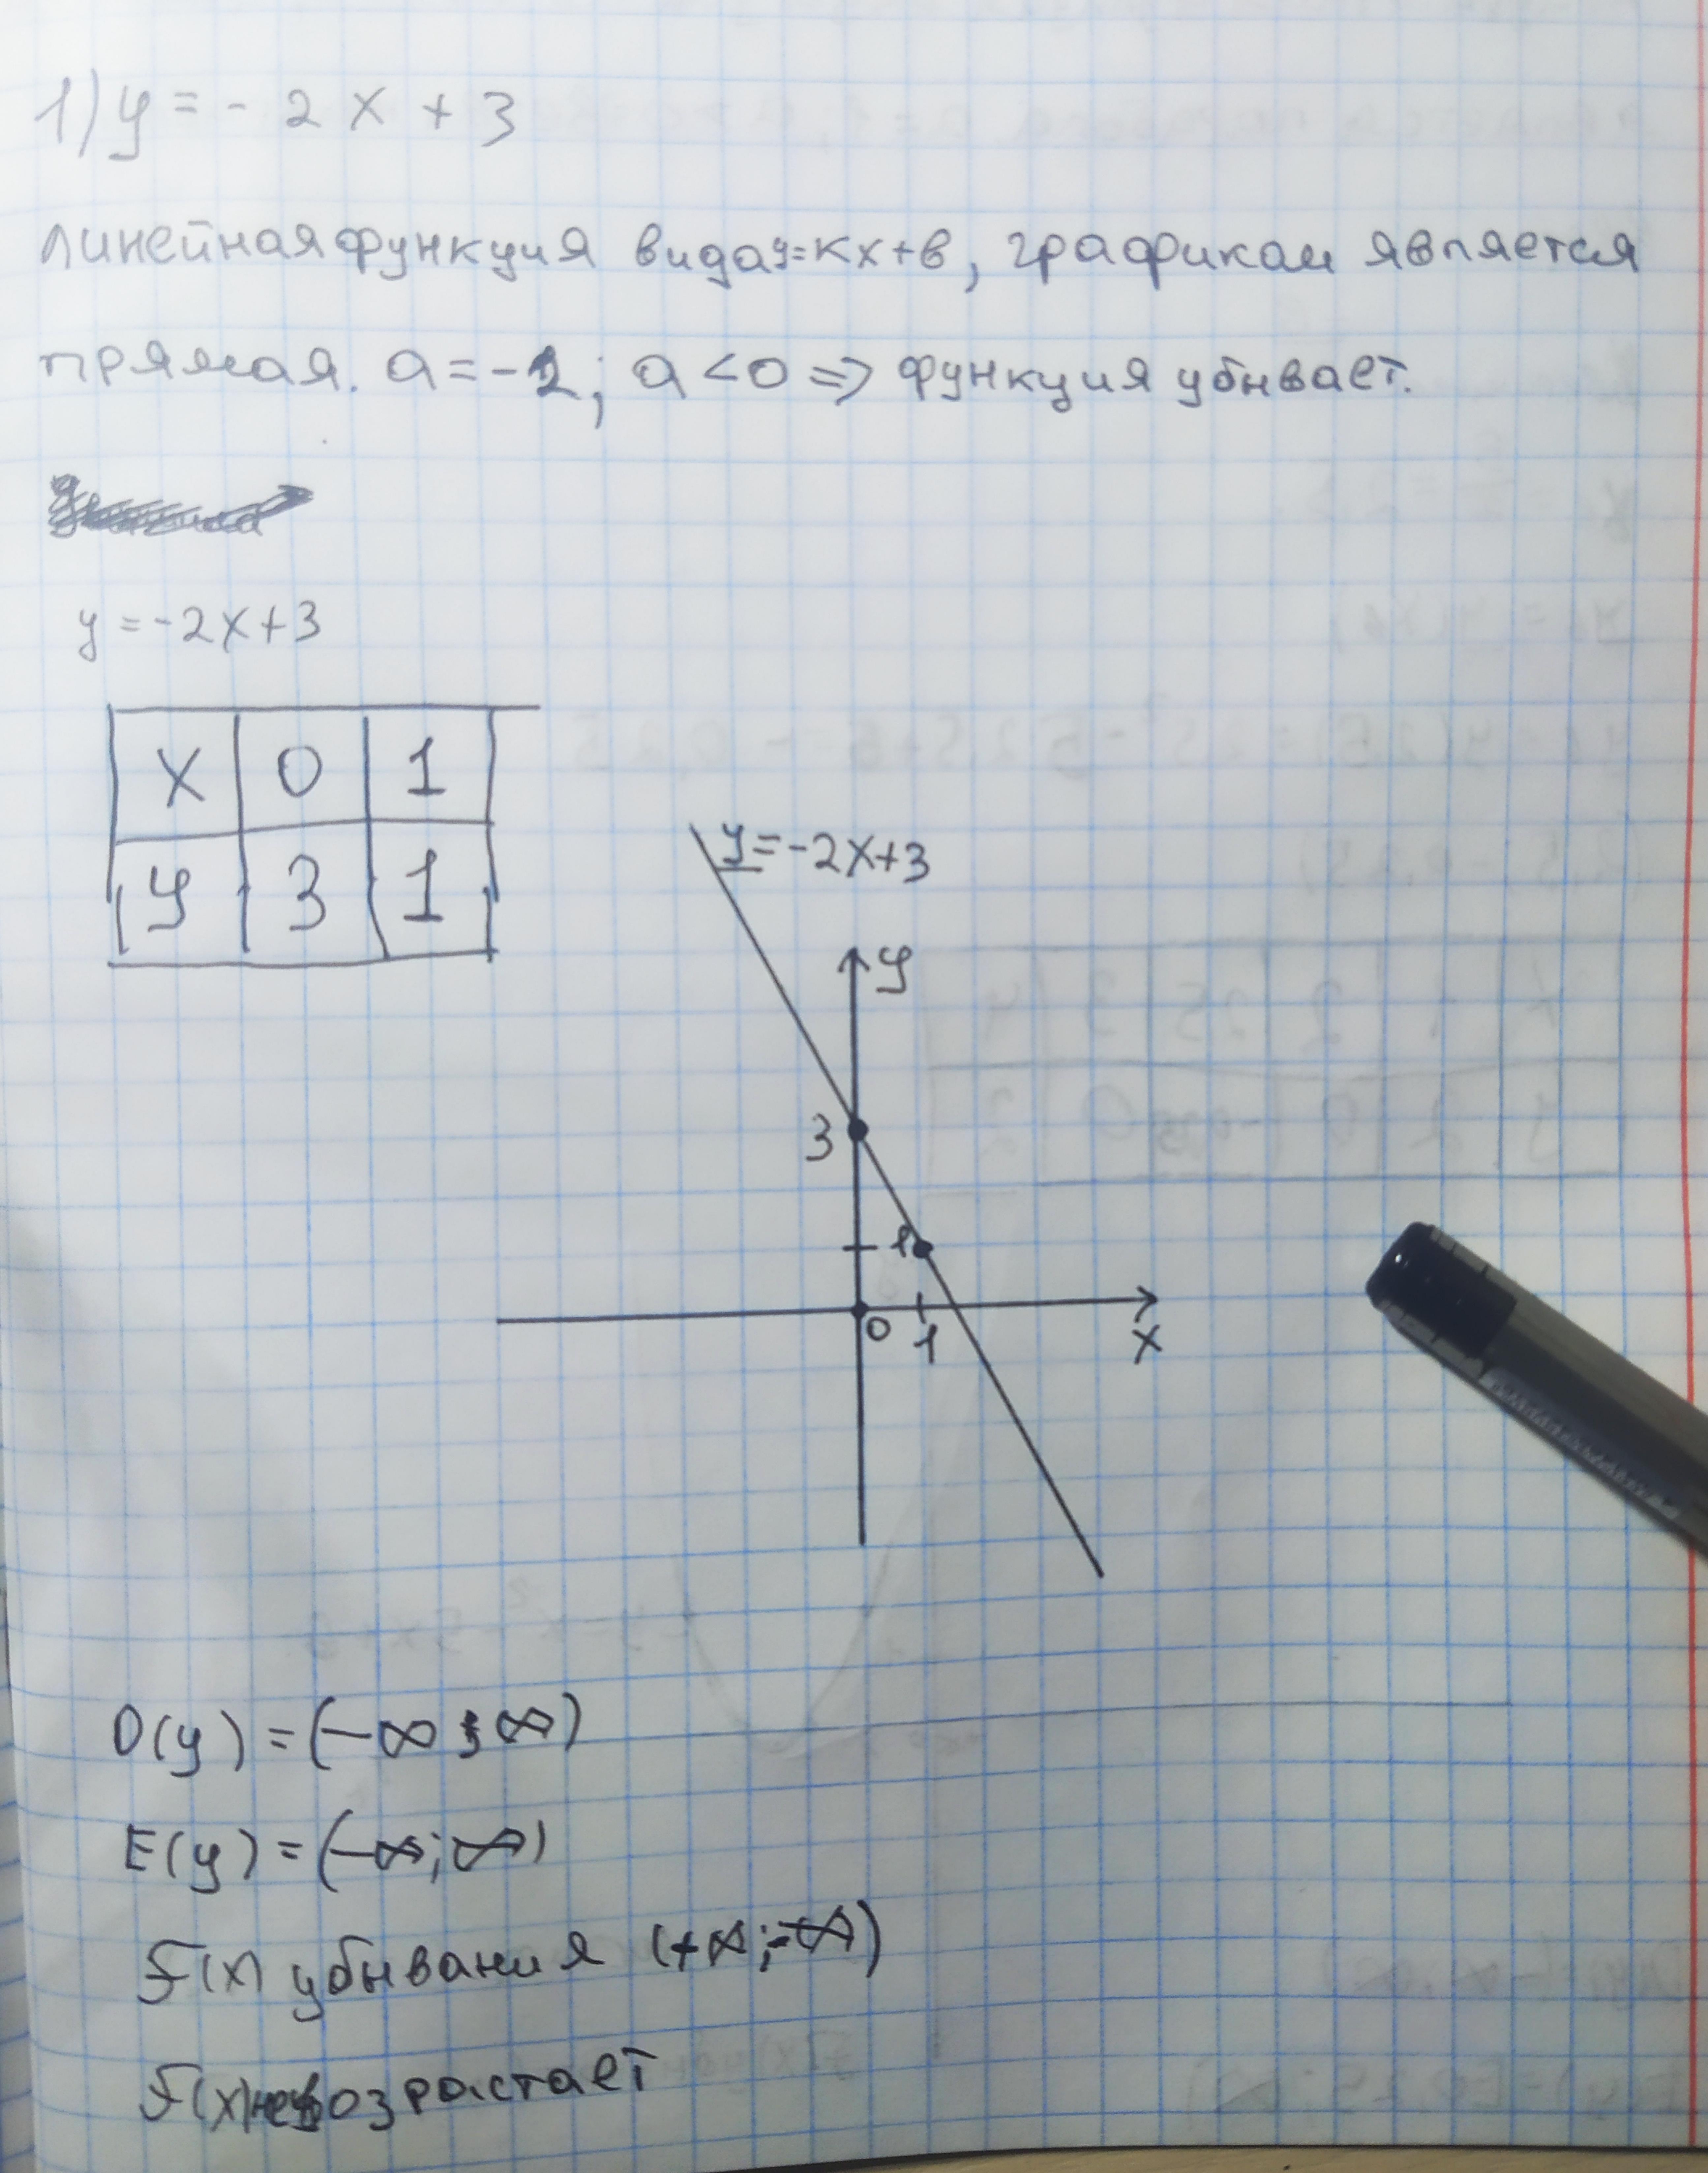 1) y = - 2 x + 3
линейная функция вида y=кx+в, графиком является
прямая. a = -2; a < 0 => функция убывает.
y = -2x+3
x 0 1
y 3 1
y = -2x+3
y
3
1
0
1
x
D(y) = (-∞; ∞)
E(y) = (-∞; ∞)
F(x) убывания (+∞; -∞)
F(x) не возрастает